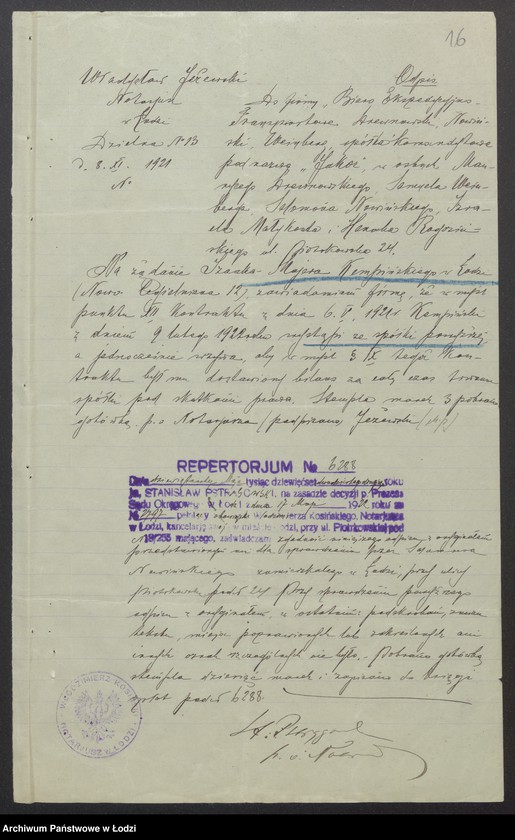 16
Władysław Jeżewski
Notarjusz
w Łodzi
Dzielna № 13
d. 8. XI. 1921
№
Odpis
Do firmy „Biuro Ekspedycyjno-
Transportowe Drewnowski, Nowiń-
ski, Weinberg, spółka komandytowa
pod nazwą „Jakor”, w osobach Mau-
rycego Drewnowskiego, Samuela Wein-
berga, Salomona Nowińskiego, Izra-
ela Małych i Henocha
ul. Piotrkowska 24.
Na żądanie Izaaka-Majera Kempińskiego w Łodzi
(Nowo Cegielniana 12), zawiadamiam firmę, że w myśl
punktu XII kontraktu z dnia 6. V. 1921 r. Kempiński
z dniem 9 lutego 1922 roku występuje ze spółki powyższej
a jednocześnie wzywa, aby w myśl § IX tegoż kon-
traktu był mu dostawiony bilans za cały czas trwania
spółki pod skutkami prawa. Stempla marek 3 pobrano
gotówką. p. o Notarjusza (podpisano) Jeżewski (mp)
REPERTORJUM № 6288
Dnia dziewiątego tysiąc dziewięćset dwudziestego roku
ja, STANISŁAW na zasadzie decyzji p. Prezesa
Sądu Okręgowego w Łodzi z dnia 17 Maja 192 roku za
№ pełniący obowiązki Włodzimierza Kosińskiego, Notarjusza
w Łodzi, kancelarję swą w mieście Łodzi, przy ul. Piotrkowskiej pod
№ 19/255 mającego, zaświadczam zgodność niniejszego odpisu z oryginałem
przedstawionym mi dla sprawdzenia przez Salomona
Nowińskiego zamieszkałego w Łodzi, przy ulicy
Piotrkowskiej pod № 24. Przy sprawdzeniu powyższego
odpisu z oryginałem, w ostatnim podskrobań, zmian
tekstu, miejsc poprawionych lub zakreślonych ani
innych oznak szczególnych nie było. Pobrano gotówką
stempla dziesięć marek i zapisano do księgi
pod № 6288.
WŁODZIMIERZ KOSIŃSKI
NOTARJUSZ W ŁODZI
Archiwum Państwowe w Łodzi